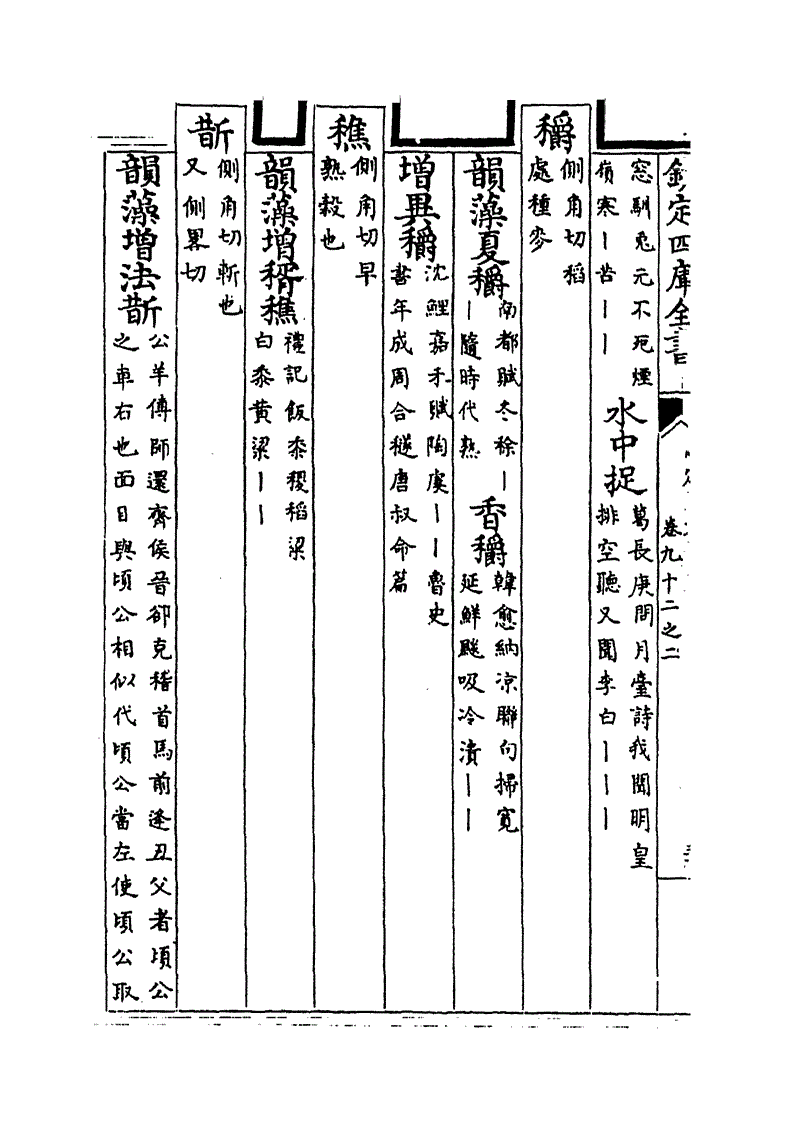 欽定四庫全書
卷九十二之二
窓馴兎元不死煙
嶺寒丨苦丨丨
水中捉
萬長庚問月臺詩我聞明皇
排空聽又聞李白丨丨丨
穱
側角切稻
處種麥
韻藻夏穱
南都賦冬稌丨
丨隨時代熟
香穱
韓愈納凉聯句掃寛
延鮮飈吸冷漬丨丨
增異穱
沈鯉嘉禾賦陶虞丨丨魯史
書年成周合穟唐叔命篇
穛
側角切早
熟穀也
韻藻增稰穛
禮記飯黍稷稻梁
白黍黄梁丨丨
斮
側角切斬也
又側畧切
韻藻增法斮
公羊傳師還齊侯晉郤克稽首馬前逄丑父者頃公
之車右也面目與頃公相似代頃公當左使頃公取